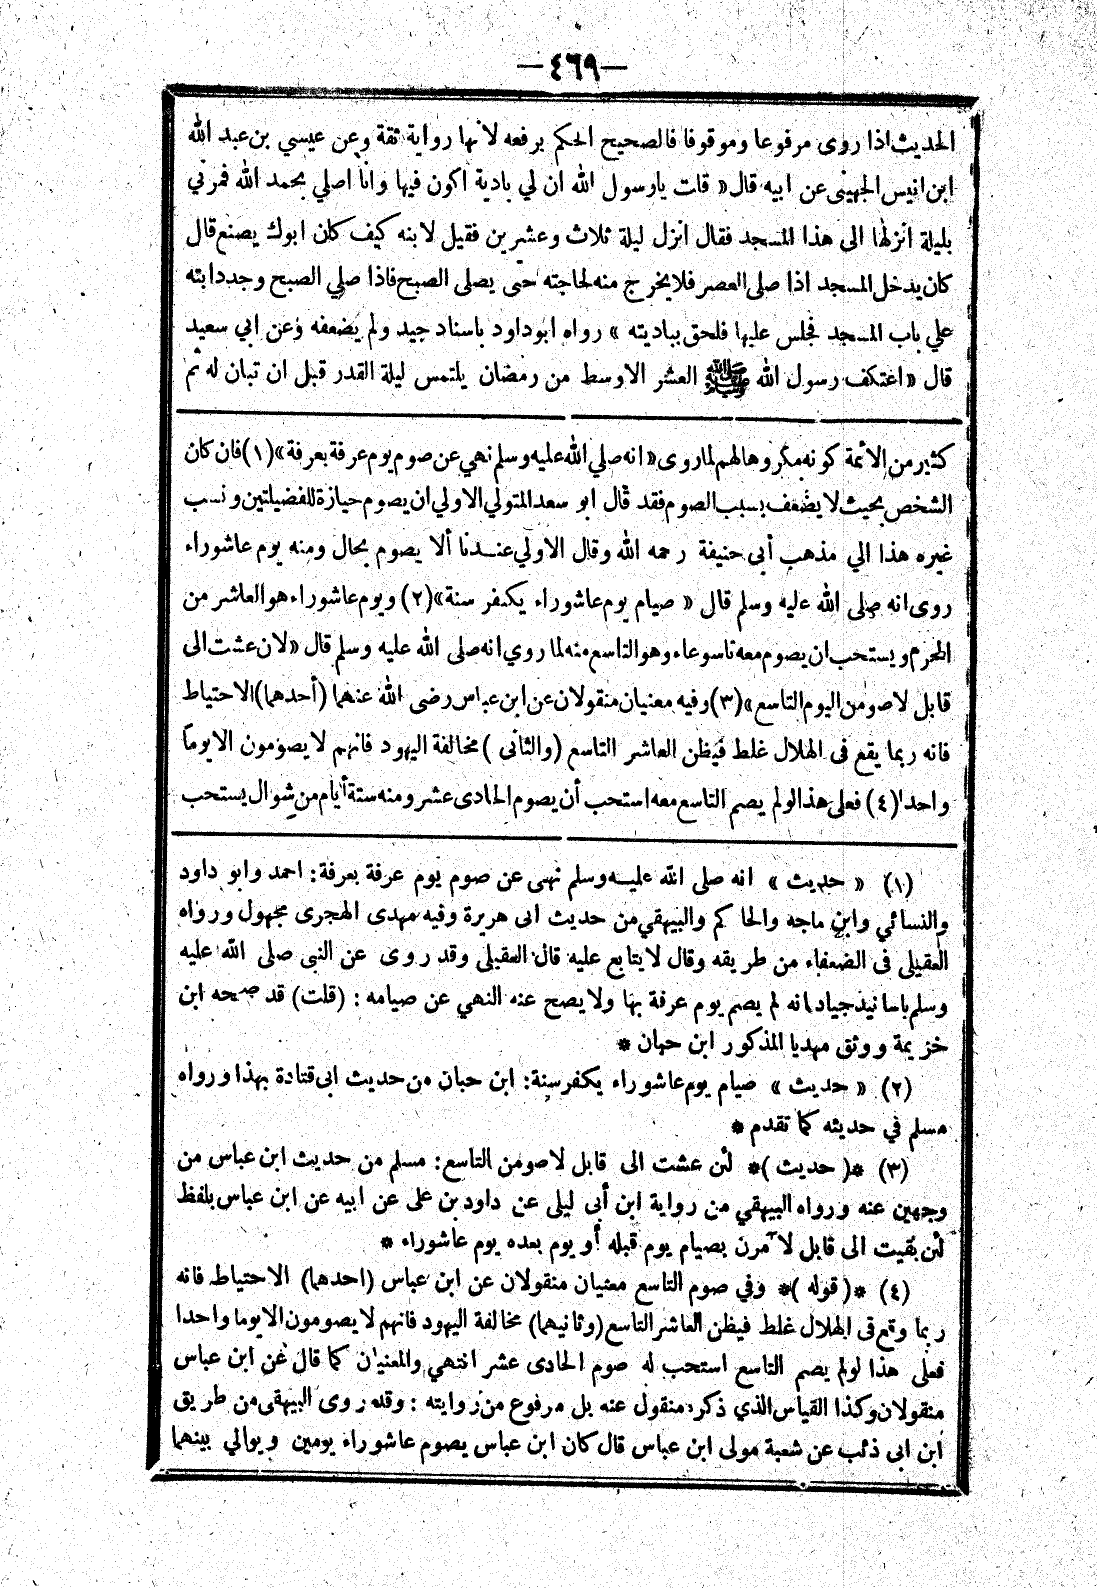 —٤٦٩—
الحديث اذا روى مرفوعا وموقوفا فالصحيح الحكم برفعه لانها رواية ثقة وعن عيسي بن عبد الله
ابن انيس الجهينى عن ابيه قال « قات يارسول الله ان لي بادية اكون فيها وانا اصلي بحمد الله فمرني
بليلة انزلها الى هذا المسجد فقال انزل ليلة ثلاث وعشرين فقيل لابنه كيف كان ابوك يصنع قال
كان يدخل المسجد اذا صلى العصر فلا يخرج منه لحاجته حتى يصلى الصبح فاذا صلي الصبح وجد دابته
علي باب المسجد فجلس عليها فلحق بباديته » رواه ابوداود باسناد جيد ولم يضعفه وعن ابي سعيد
قال « اعتكف رسول الله ﷺ العشر الاوسط من رمضان يلتمس ليلة القدر قبل ان تبان له ثم
كثير من الائمة كونه مكروها لهم لما روى « انه صلي الله عليه وسلم نهي عن صوم يوم عرفة بعرفة » (١) فان كان
الشخص بحيث لا يضعف بسبب الصوم فقد قال ابو سعد المتولي الاولي ان يصوم حيازة للفضيلتين ونسب
غيره هذا الي مذهب أبى حنيفة رحمه الله وقال الاولي عندنا ألا يصوم بحال ومنه يوم عاشوراء
روى انه صلى الله عليه وسلم قال « صيام يوم عاشوراء يكفر سنة » (٢) ويوم عاشوراء هو العاشر من
المحرم ويستحب ان يصوم معه تاسوعاء وهو التاسع منه لما روي انه صلى الله عليه وسلم قال « لان عشت الى
قابل لاصومن اليوم التاسع » (٣) وفيه معنيان منقولان عن ابن عباس رضى الله عنهما (أحدهما) الاحتياط
فانه ربما يقع فى الهلال غلط فيظن العاشر التاسع (والثانى ) مخالفة اليهود فانهم لا يصومون الا يوماً
واحدا (٤) فعلى هذا لو لم يصم التاسع معه استحب أن يصوم الحادى عشر ومنه ستة أيام من شوال يستحب
(١) « حديث » انه صلى الله عليه وسلم نهى عن صوم يوم عرفة بعرفة : احمد وابو داود
والنسائي وابن ماجه والحاكم والبيهقي من حديث ابى هريرة وفيه مهدى الهجرى مجهول ورواه
العقيلى فى الضعفاء من طريقه وقال لا يتابع عليه قال العقيلى وقد روى عن النبى صلى الله عليه
وسلم باسانيد جياد انه لم يصم يوم عرفة بها ولا يصح عنه النهي عن صيامه : (قلت) قد صححه ابن
خزيمة ووثق مهديا المذكور ابن حبان *
(٢) « حديث » صيام يوم عاشوراء يكفر سنة : ابن حبان من حديث ابى قتادة بهذا ورواه
مسلم في حديثه كما تقدم *
(٣) *( حديث )* لئن عشت الى قابل لاصومن التاسع : مسلم من حديث ابن عباس من
وجهين عنه ورواه البيهقي من رواية ابن أبى ليلى عن داود بن على عن ابيه عن ابن عباس بلفظ
لئن بقيت الى قابل لآمرن بصيام يوم قبله أو يوم بعده يوم عاشوراء *
(٤) *( قوله )* وفي صوم التاسع معنيان منقولان عن ابن عباس (احدهما) الاحتياط فانه
ربما وقع فى الهلال غلط فيظن العاشر التاسع (وثانيهما) مخالفة اليهود فانهم لا يصومون الا يوما واحدا
فعلى هذا لو لم يصم التاسع استحب له صوم الحادى عشر انتهي والمعنيان كما قال عن ابن عباس
منقولان وكذا القياس الذي ذكره منقول عنه بل مرفوع من روايته : وقد روى البيهقى من طريق
ابن ابى ذئب عن شعبة مولى ابن عباس قال كان ابن عباس يصوم عاشوراء يومين ويوالي بينهما